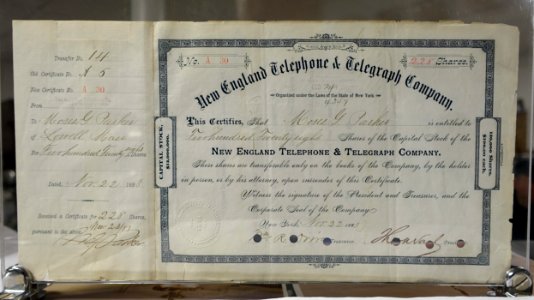 Transfer No. 14
Old Certificate No. A 6
New Certificate No. A 30
From
To Moses G. Parker
Lowell Mass
For Two hundred Twenty eight Shares
Dated, Nov. 22 188
Received a Certificate for 228 Shares,
pursuant to the above.
CAPITAL STOCK,
No. A 30
228 Shares.
New England Telephone & Telegraph Company.
Organized under the Laws of the State of New York
This Certifies, That Moses G. Parker is entitled to
Two hundred Twenty eight Shares of the Capital Stock of the
NEW ENGLAND TELEPHONE & TELEGRAPH COMPANY.
This shares are transferable only on the books of the Company, by the holder
in person, or by his attorney, upon surrender of this Certificate.
Witness the signature of the President and Treasurer, and the
Corporate Seal of the Company.
New York, Nov. 22 188
Treasurer